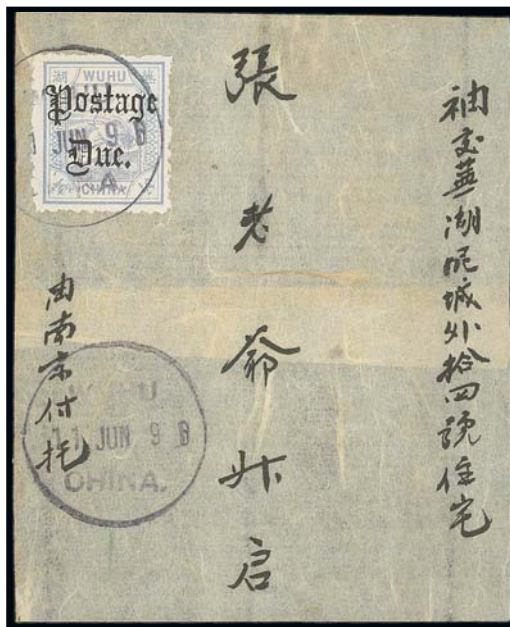 袖交蕪湖 城外拾四號住宅
張老爺升启
由南京付托
湖 WUHU 蕪
Postage
Due.
CHINA
JUN 96
A
WUHU
11 JUN 96
CHINA.